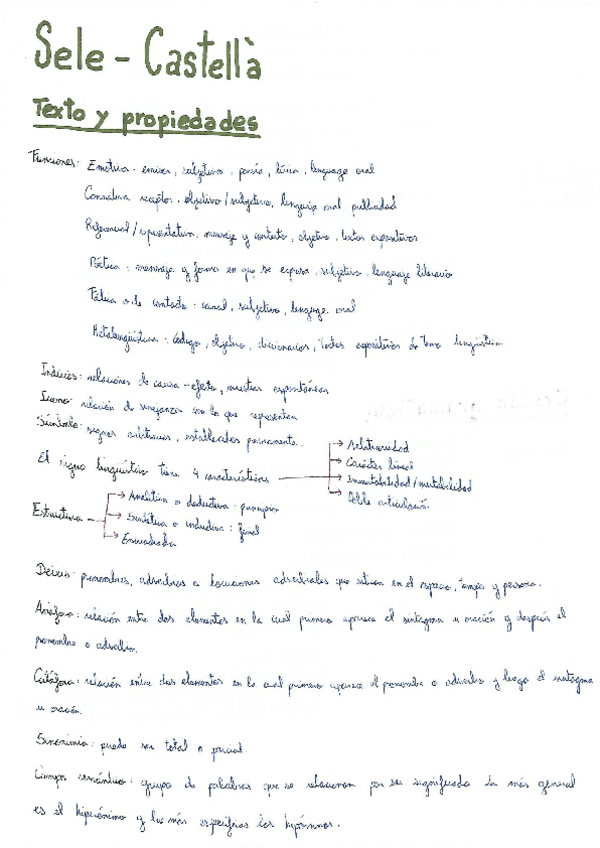 Sele - Castellà
Texto y propiedades
Funciones: Emotiva: emisor, subjetivo, poesía, lírica, lenguage oral
Conativa receptor, objetivo / subjetivo, lenguaje oral publicidad
Referencial / representativa, mensaje y contexto, objetivo, textos expositivos
Poética: mensaje y forma en que se expresa, subjetivo, lenguaje literario
Fática o de contacto: canal, subjetivo, lenguaje oral
Metalingüística: código, objetivo, diccionarios, textos expositivos de tema lingüístico
Indicios: relaciones de causa-efecto, muestras espontáneas
Icono: relación de semejanza con lo que representan
Símbolo: signos arbitrarios, establecidos previamente.
El signo lingüístico tiene 4 características
→ Arbitrariedad
→ Carácter lineal
→ Inmutabilidad / mutabilidad
→ Doble articulación.
Estructura
→ Analítica o deductiva: principio
→ Sintética o inductiva: final
→ Encuadrada
Deixis: pronombres, adverbios o locuciones adverbiales que sitúan en el espacio, tiempo y persona.
Anáfora: relación entre dos elementos en la cual primero aparece el sintagma u oración y después el
pronombre o adverbio.
Catáfora: relación entre dos elementos en la cual primero aparece el pronombre o adverbio y luego el sintagma
u oración.
Sinonimia: puede ser total o parcial
Campo semántico: grupo de palabras que se relacionan por su significado La más general
es el hiperónimo y las más específicas los hipónimos.